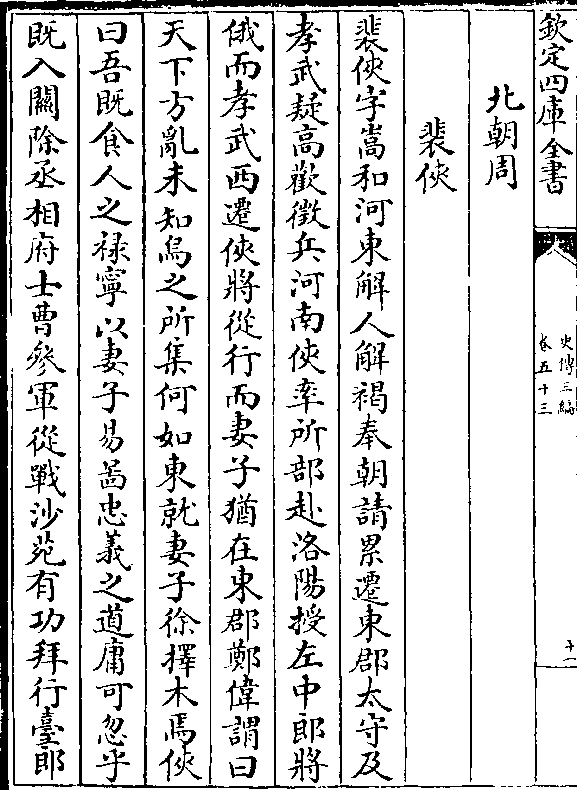 欽定四庫全書
史傳三編
卷五十三
十一
北朝周
裴俠
裴俠字嵩和河東解人解褐奉朝請累遷東郡太守及
孝武疑高歡徵兵河南俠率所部赴洛陽授左中郎將
俄而孝武西遷俠將從行而妻子猶在東郡鄭偉謂曰
天下方亂未知烏之所集何如東就妻子徐擇木焉俠
曰吾既食人之禄寧以妻子易啚忠義之道庸可忽乎
既入關除丞相府士曹參軍從戰沙苑有功拜行臺郎